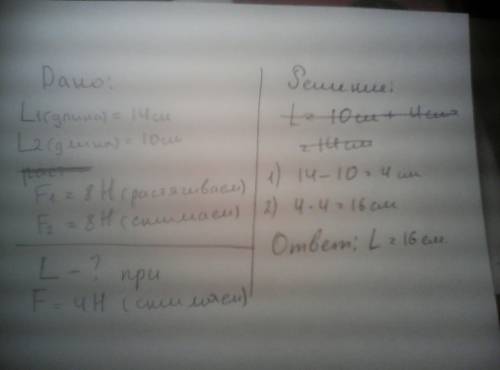 Дано:
L1(длина) = 14см
L2(длина) = 10см
F1 = 8H (растягиваем)
F2 = 8H (сжимаем)
L - ? при
F = 4H (сжимаем)
Решение:
L = 10см + 4см
= 14см
1) 14 - 10 = 4 см
2) 4 · 4 = 16 см
Ответ: L = 16 см.